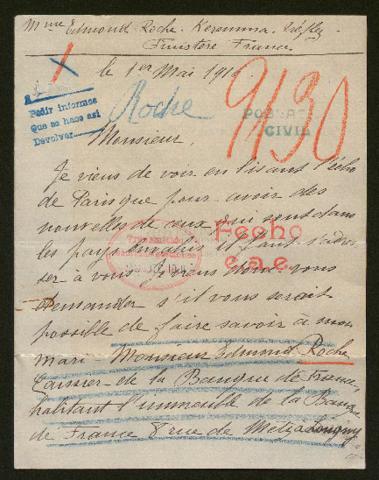 Mme Edmond Roche. Keremma. Tréflez
Finistère France
le 1er Mai 1916
1
Pedir informes
Que se hace así
Devolver
Roche
9130
CIVIL
Monsieur,
Je viens de voir en lisant l'écho
de Paris que pour avoir des
nouvelles de ceux qui sont dans
les pays envahis il faut s'adres-
ser à vous. Je viens donc vous
Fecho
c.a.e.
demander s'il vous serait
possible de faire savoir à mon
mari Monsieur Edmond Roche
Caissier de la Banque de France,
habitant l'immeuble de la Banque
de France 8 rue de Metz à Longwy